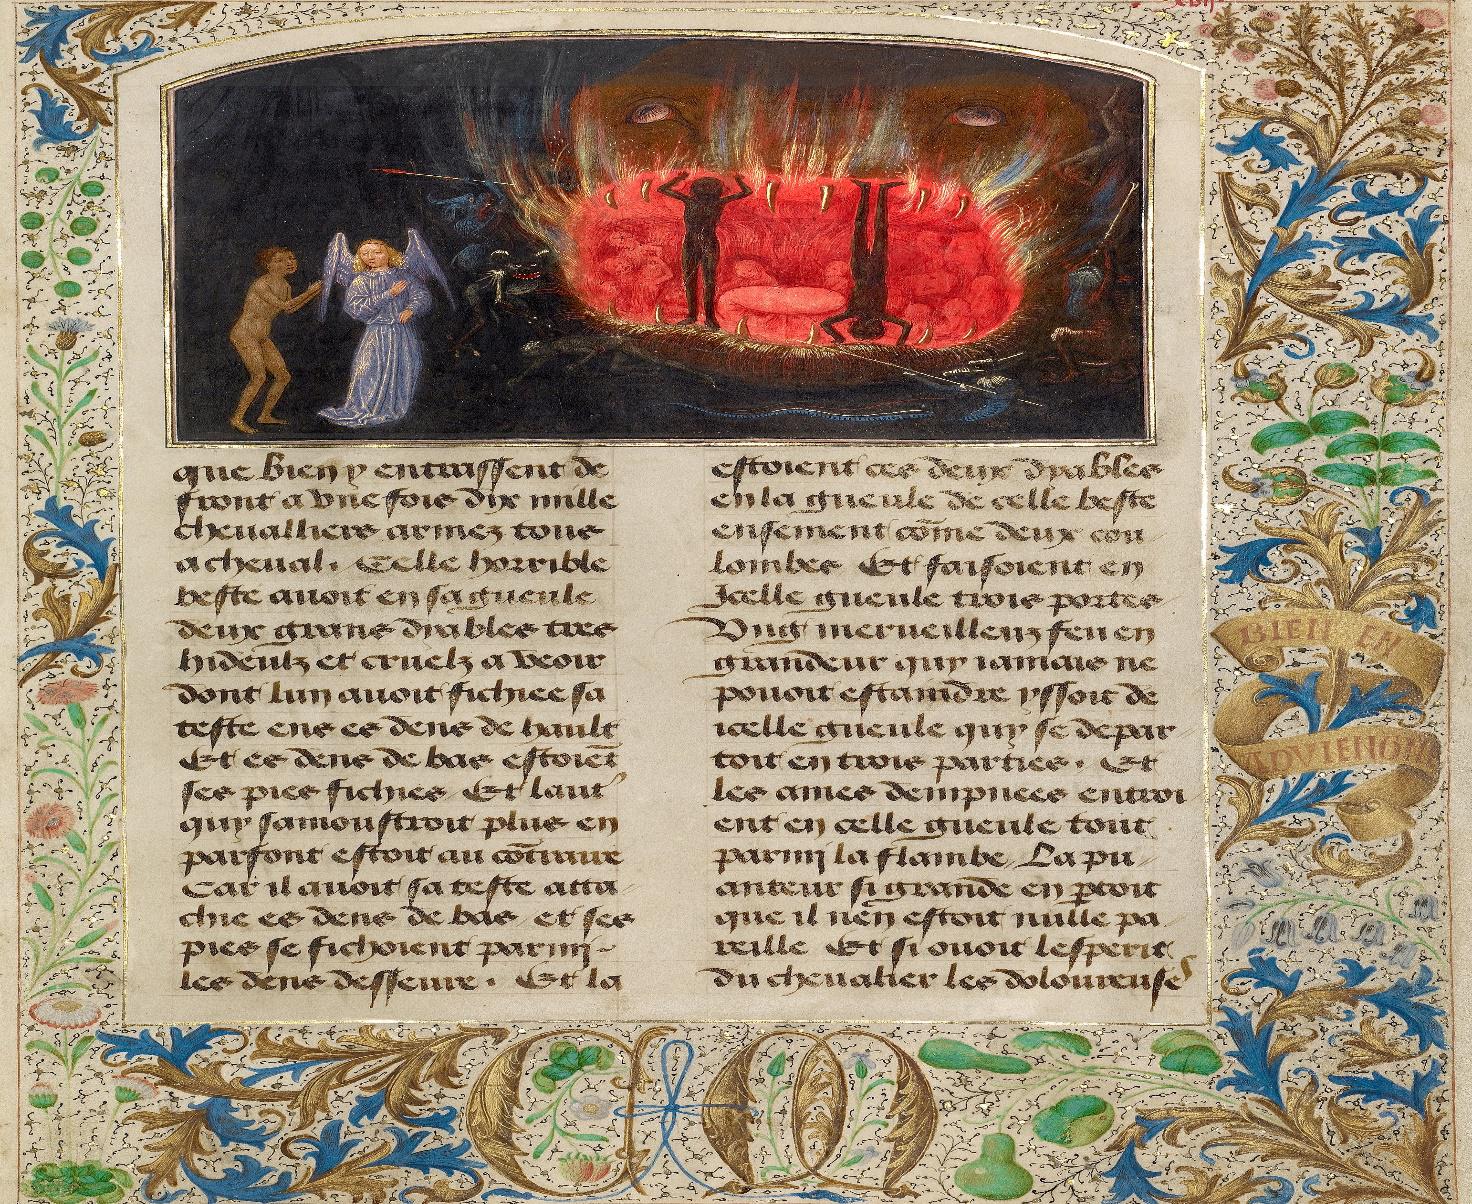 que bien y entraissent de
front a vne fois dix mille
cheualliers armez tous
a cheual. Celle horrible
beste auoit en sa gueule
deux grans dyables tres
hideulz et cruelz a veoir
dont lun auoit fichiee sa
teste ens es dens de hault
Et es dens de bas estoiẽt
ses pies fichies Et laut'
quy samoustroit plus en
parfont estoit au cõtraire
Car il auoit sa teste atta
chie es dens de bas et ses
pies se fichoient parmy
les dens desseure. Et la
estoient ces deux dyables
en la gueule de celle beste
ensement cõme deux cou
lombes Et faisoient en
Icelle gueule trois portes
Vng merueilleux feu en
grandeur quy iamais ne
pouoit estaindre yssoit de
icelle gueule quy se depar
toit en trois parties. Et
les ames dempnees entroi
ent en celle gueule tout
parmi la flambe La pu
anteur si grande en ꝑtoit
que il nen estoit nulle pa
reille Et si ouoit lesperit
du cheualier les doloureuses
BIEN EN
ADVIENGNE
C M